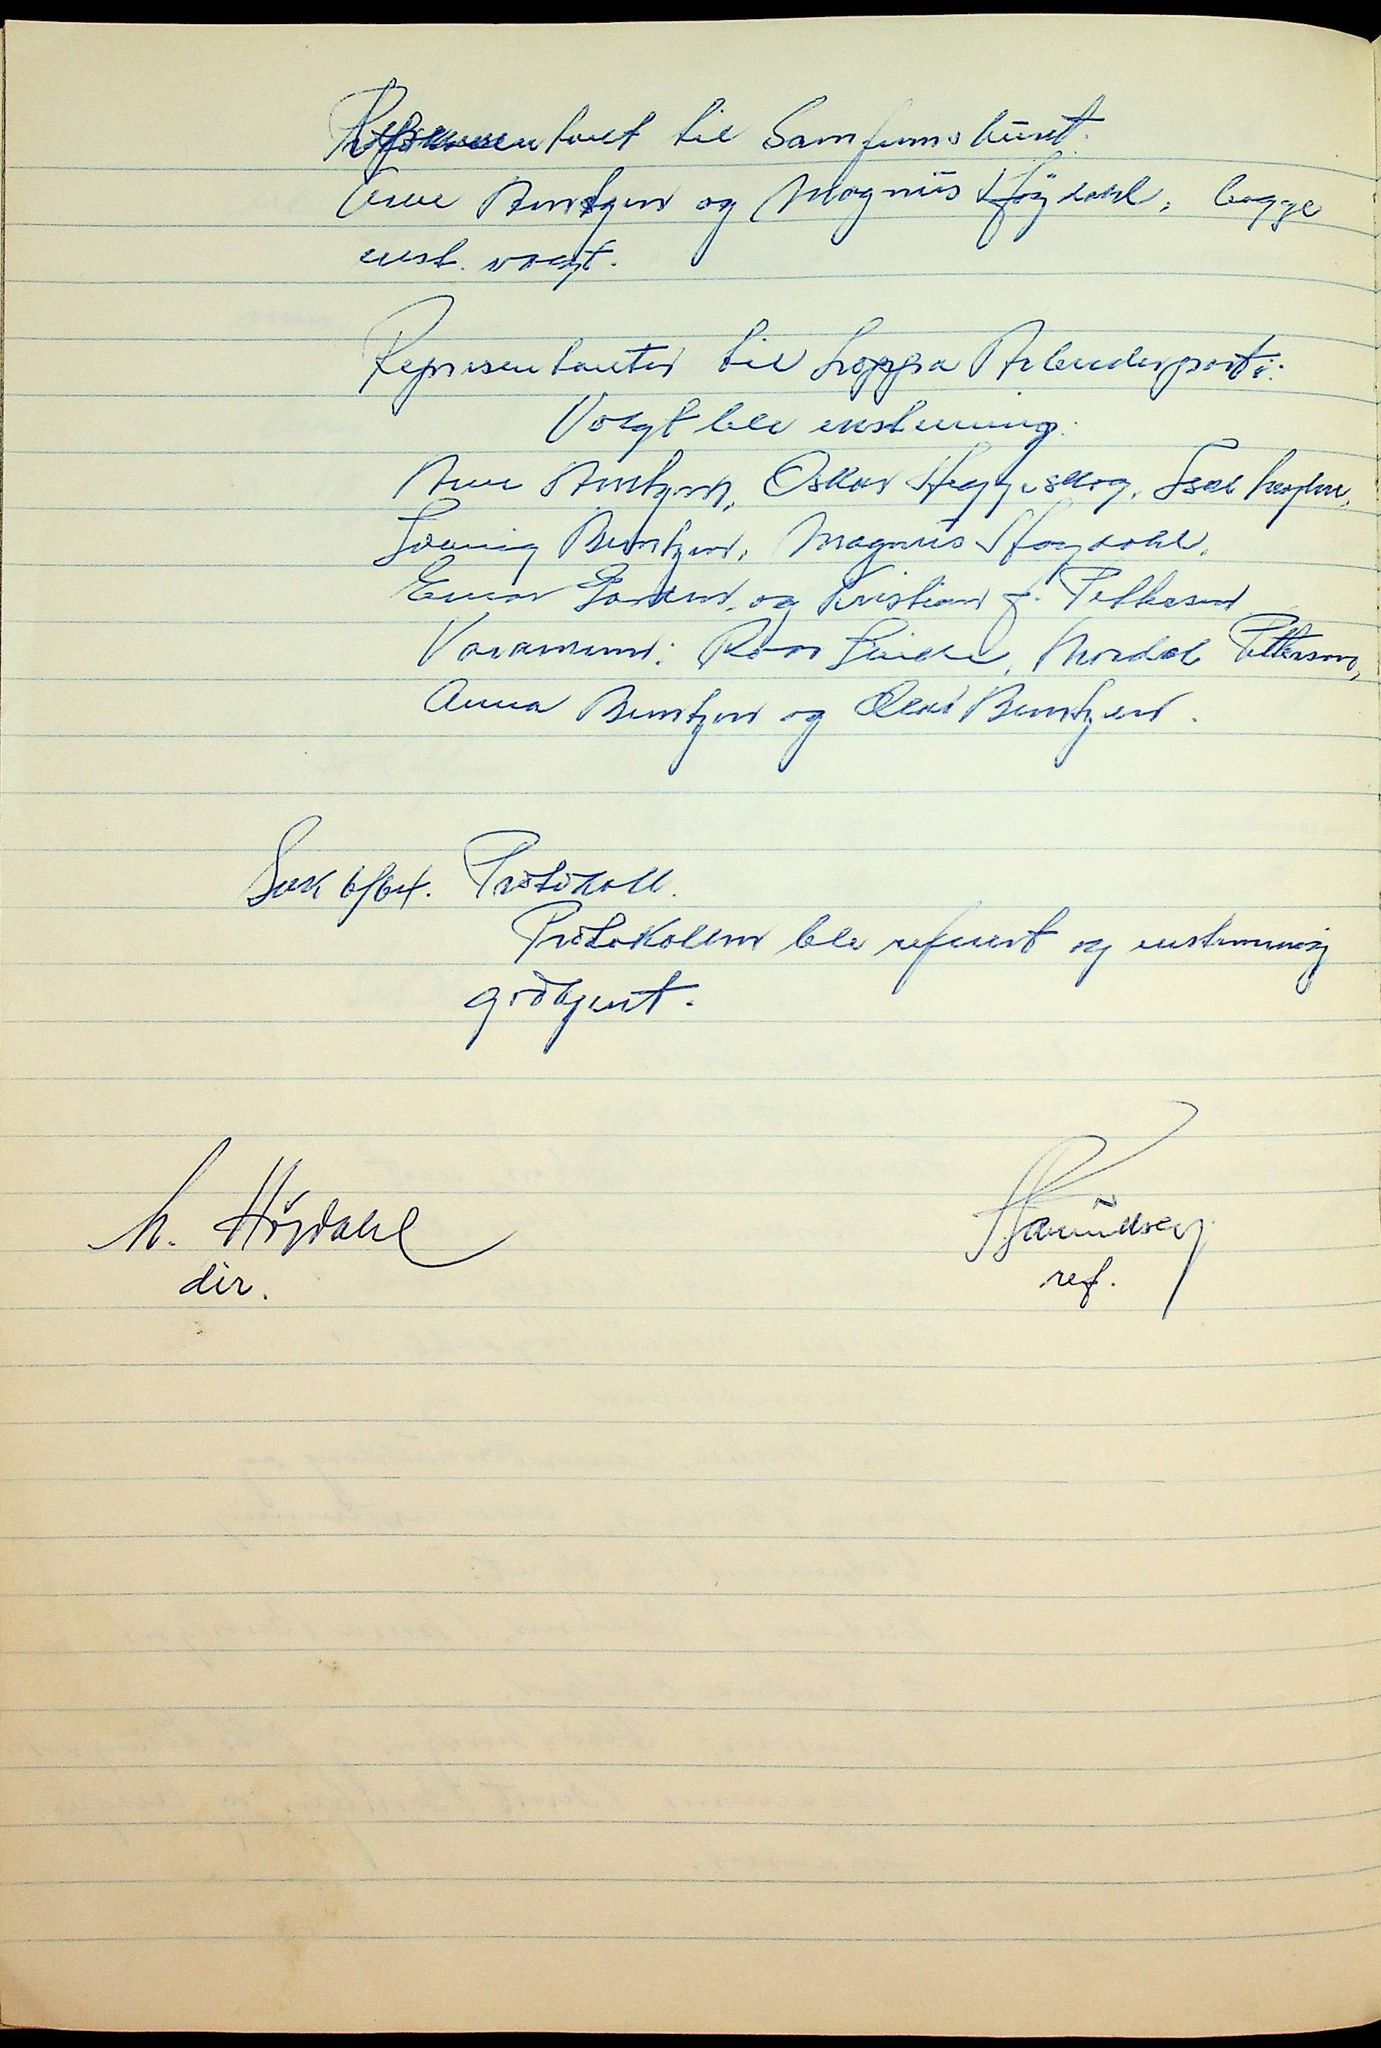 Representant til Samfunnshuset.
Arne Berntzen og Magnus Høydahl, begge
enst. valgt.
Representanter til Loppa Arbeiderparti:
Valgt ble enstemmig:
Arne Berntzen, Oskar Heggeskog,
Solveig Berntzen, Magnus Høydahl,
Einar Jensen, og Kristian J. Pettersen
Varamenn: Roar, Mordal Pettersen,
Anna Berntzen og Olav Berntzen.
Sak 6/64. Protokoll.
Protokollen ble referert og enstemmig
godkjent.
M. Høydahl
dir.
ref.